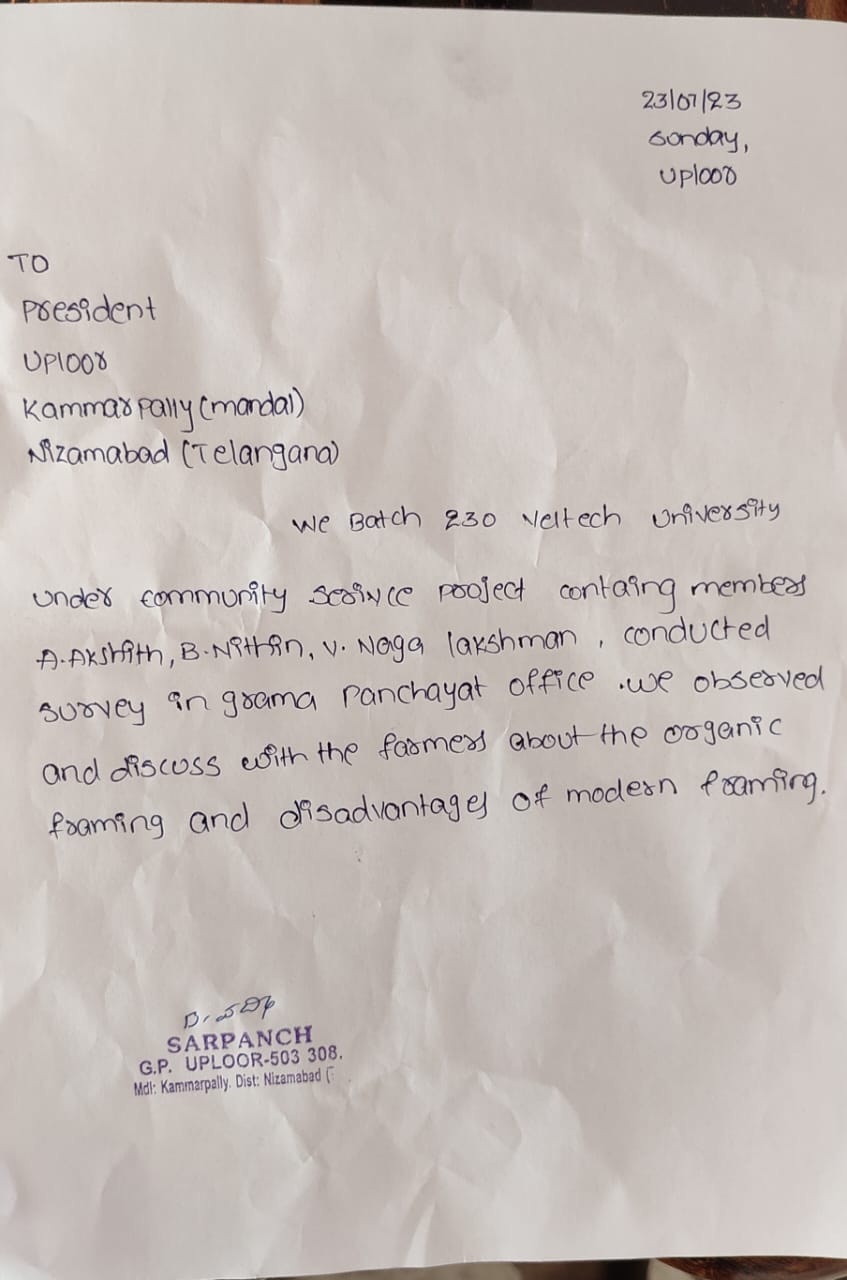 23/07/23
sunday,
Uploor
TO
President
Uploor
Kammarpally (mandal)
Nizamabad (Telangana)
We Batch 230 Veltech University
under community serivce project containg members
A.Akshith, B.Nithin, V. Naga lakshman , conducted
survey in grama Panchayat office .we observed
and discuss with the farmers about the organic
framing and disadvantages of modern framing.
SARPANCH
G.P. UPLOOR-503 308.
Mdl: Kammarpally. Dist: Nizamabad (